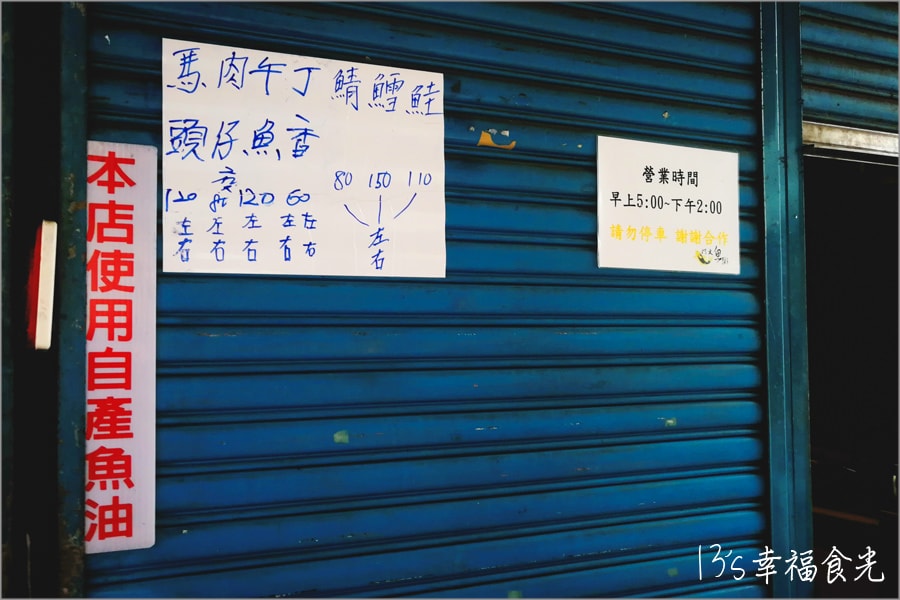 馬肉午丁鯖鱈鮭
頭仔魚香
120 皮 120 60 80 150 110
左 左 左 左左 左
右 右 右 右右 右
本店使用自產魚油
營業時間
早上5:00~下午2:00
請勿停車 謝謝合作
13's幸福食光